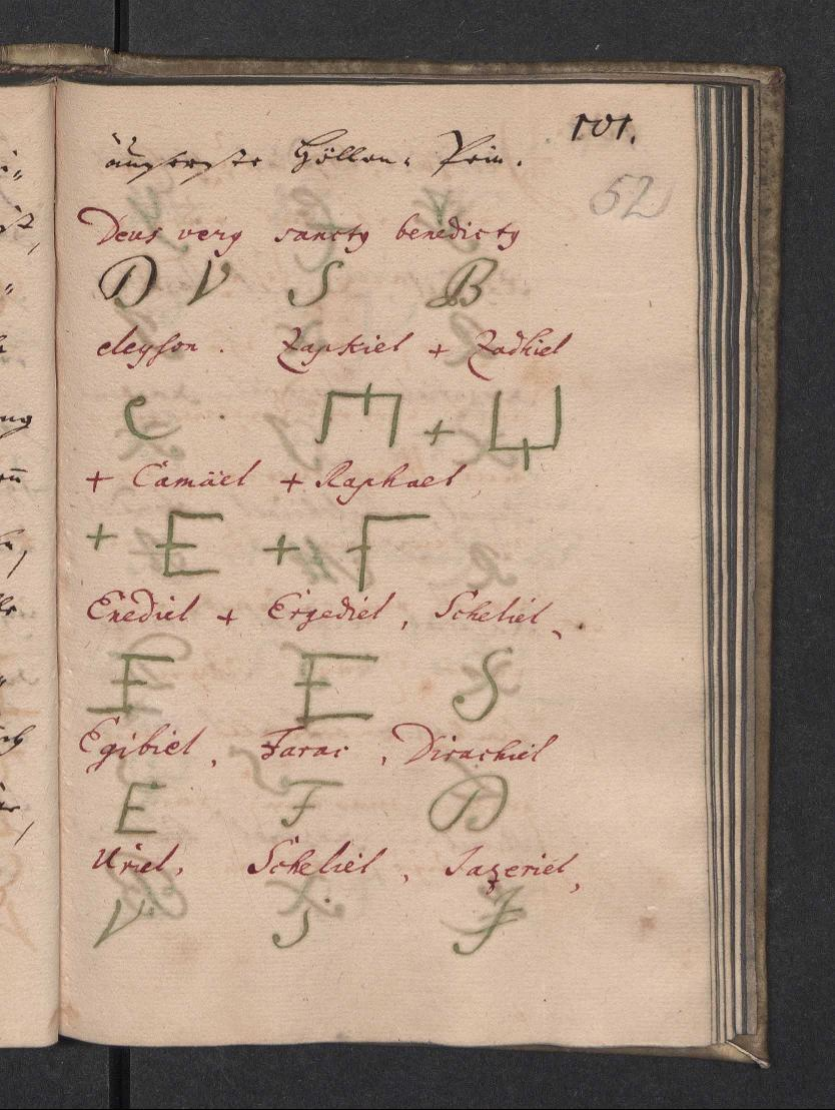 101.
äußerste Höllen-Pein.
52
Deus very sancty benedicty
D V S B
eleyson. Zapkiel + Zadkiel
e . +
+ Camäel + Raphael,
+ E + F
Enediel + Ergediel, Scheliel,
E E S
Egibiel, Farac, Dirachiel
E F D
Uriel, Scheliel, Jazeriel,
V S J